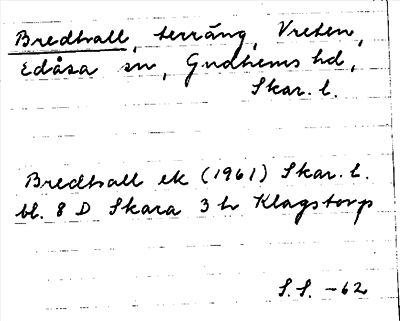 Bredhall, terräng, Vreten,
Edåsa sn, Gudhems hd,
Skar. l.
Bredhall ek (1961) Skar. l.
bl. 8 D Skara 3 h Klagstorp
S.S. -62